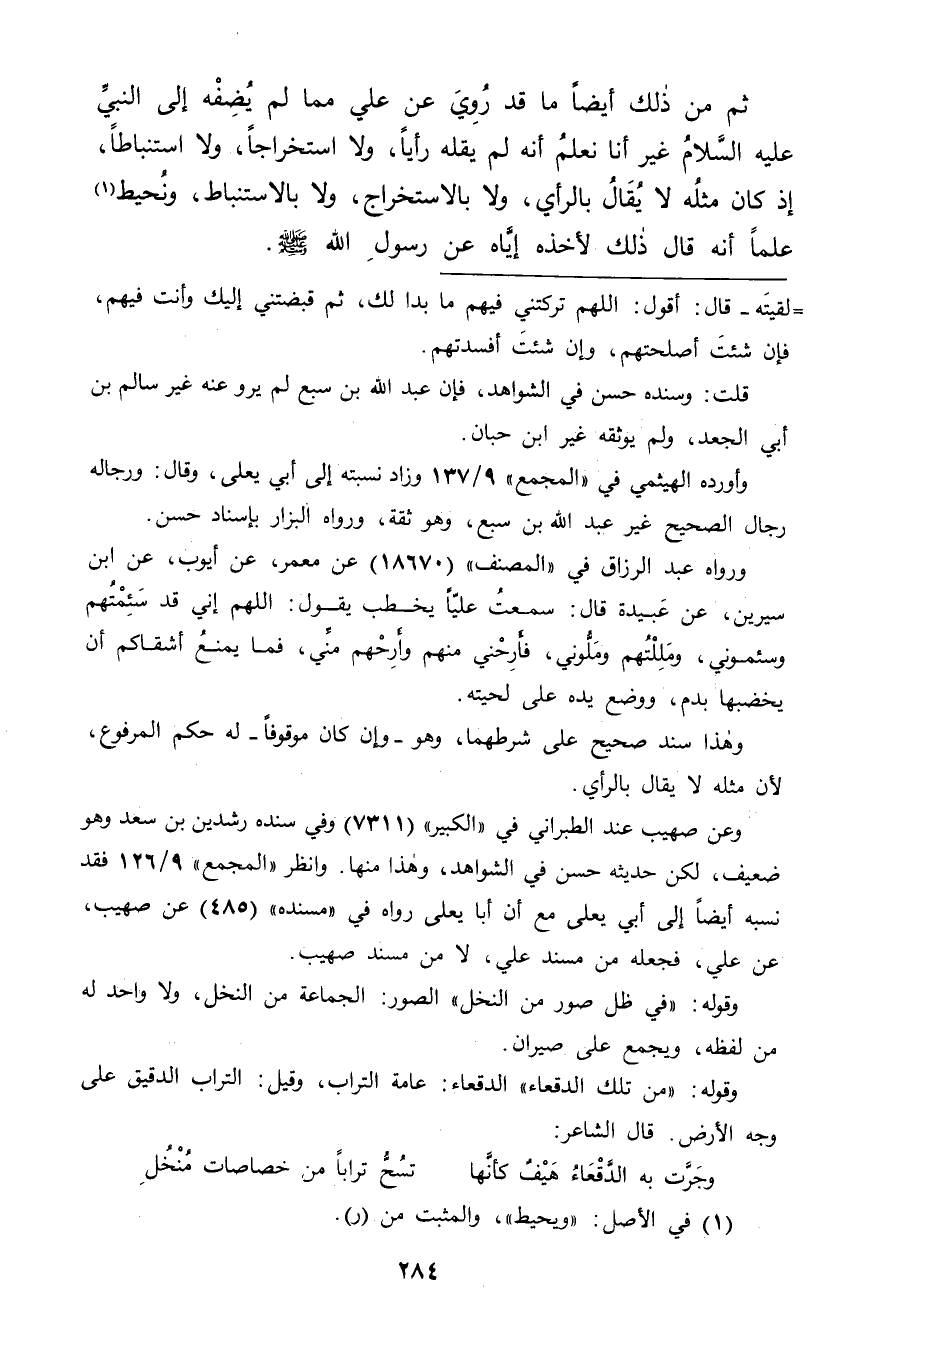 ثم من ذٰلك أيضاً ما قد رُوِيَ عن علي مما لم يُضِفْه إلى النبيِّ
عليه السَّلامُ غير أنا نعلمُ أنه لم يقله رأياً، ولا استخراجاً، ولا استنباطاً،
إذ كان مثلُه لا يُقَالُ بالرأي، ولا بالاستخراج، ولا بالاستنباط، ونُحيط(١)
علماً أنه قال ذٰلك لأخذه إيَّاه عن رسولِ الله ﷺ.
=لقيتَه ـ قال: أقول: اللهم تركتني فيهم ما بدا لك، ثم قبضتني إليك وأنت فيهم،
فإن شئتَ أصلحتهم، وإن شئتَ أفسدتهم.
قلت: وسنده حسن في الشواهد، فإن عبد الله بن سبع لم يرو عنه غير سالم بن
أبي الجعد، ولم يوثقه غير ابن حبان.
وأورده الهيثمي في «المجمع» ١٣٧/٩ وزاد نسبته إلى أبي يعلى، وقال: ورجاله
رجال الصحيح غير عبد الله بن سبع، وهو ثقة، ورواه البزار بإسناد حسن.
ورواه عبد الرزاق في «المصنف» (١٨٦٧٠) عن معمر، عن أيوب، عن ابن
سيرين، عن عَبيدة قال: سمعتُ عليّاً يخطب يقول: اللهم إني قد سَئِمْتُهم
وسئموني، ومَلِلْتُهم ومَلُّوني، فأَرِحْني منهم وأَرِحْهم منِّي، فما يمنعُ أشقاكم أن
يخضبها بدم، ووضع يده على لحيته.
وهٰذا سند صحيح على شرطهما، وهو ـ وإن كان موقوفاً ـ له حكم المرفوع،
لأن مثله لا يقال بالرأي.
وعن صهيب عند الطبراني في «الكبير» (٧٣١١) وفي سنده رشدين بن سعد وهو
ضعيف، لكن حديثه حسن في الشواهد، وهٰذا منها. وانظر «المجمع» ١٢٦/٩ فقد
نسبه أيضاً إلى أبي يعلى مع أن أبا يعلى رواه في «مسنده» (٤٨٥) عن صهيب،
عن علي، فجعله من مسند علي، لا من مسند صهيب.
وقوله: «في ظل صور من النخل» الصور: الجماعة من النخل، ولا واحد له
من لفظه، ويجمع على صيران.
وقوله: «من تلك الدقعاء» الدقعاء: عامة التراب، وقيل: التراب الدقيق على
وجه الأرض. قال الشاعر:
وجَرَّت به الدَّقْعَاءُ هَيْفٌ كأنَّها    تسُحُّ تراباً من خصاصات مُنْخُلِ
(١) في الأصل: «ويحيط»، والمثبت من (ر).
٢٨٤